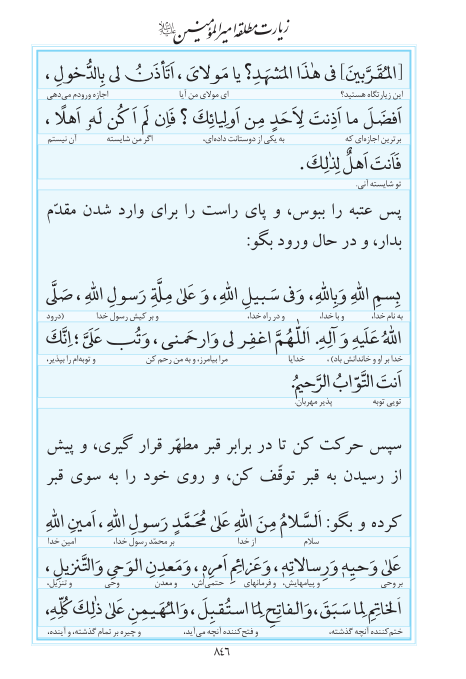 زیارت مطلقه امیرالمؤمنین علیه‌السلام
[المُقَرَّبینَ] فی هٰذَا المَشهَدِ؟ یا مَولایَ، اَتَأذَنُ لی بِالدُّخولِ،
این زیارتگاه هستید؟ ای مولای من آیا اجازه ورودم می‌دهی
اَفضَلَ ما اَذِنتَ لِاَحَدٍ مِن اَولِیائِكَ ؟ فَاِن لَم اَكُن لَهُ اَهلًا ،
برترین اجازه‌ای که به یکی از دوستانت داده‌ای، اگر من شایسته آن نیستم
فَاَنتَ اَهلٌ لِذٰلِكَ .
تو شایسته آنی.
پس عتبه را ببوس، و پای راست را برای وارد شدن مقدّم
بدار، و در حال ورود بگو:
بِسمِ اللهِ وَبِاللهِ، وَفی سَبیلِ اللهِ، وَ عَلیٰ مِلَّةِ رَسولِ اللهِ ، صَلَّی
به نام خدا، و با خدا، و در راه خدا، و بر کیش رسول خدا (درود
اللهُ عَلَیهِ وَ آلِهِ. اَللّٰهُمَّ اغفِر لی وَارحَمنی ، وَتُب عَلَیَّ ؛ اِنَّكَ
خدا بر او و خاندانش باد)، خدایا مرا بیامرز، و به من رحم کن و توبه‌ام را بپذیر،
اَنتَ التَّوّابُ الرَّحیمُ.
تویی توبه پذیر مهربان.
سپس حرکت کن تا در برابر قبر مطهّر قرار گیری، و پیش
از رسیدن به قبر توقّف کن، و روی خود را به سوی قبر
کرده و بگو: اَلسَّلامُ مِنَ اللهِ عَلیٰ مُحَمَّدٍ رَسولِ اللهِ ، اَمینِ اللهِ
سلام از خدا بر محمّد رسول خدا، امین خدا
عَلیٰ وَحیِهٖ وَرِسالاتِهٖ ، وَعَزائِمِ اَمرِهٖ ، وَمَعدِنِ الوَحیِ وَالتَّنزیلِ ،
بر وحی و پیامهایش، و فرمانهای حتمی‌اش، و معدن وحی و تنزیل،
اَلخاتِمِ لِما سَبَقَ، وَالفاتِحِ لِمَا استُقبِلَ ، وَالمُهَیمِنِ عَلیٰ ذٰلِكَ كُلِّهِ،
ختم‌کننده آنچه گذشته، و فتح‌کننده آنچه می‌آید، و چیره بر تمام گذشته، و آینده،
۸۴۶